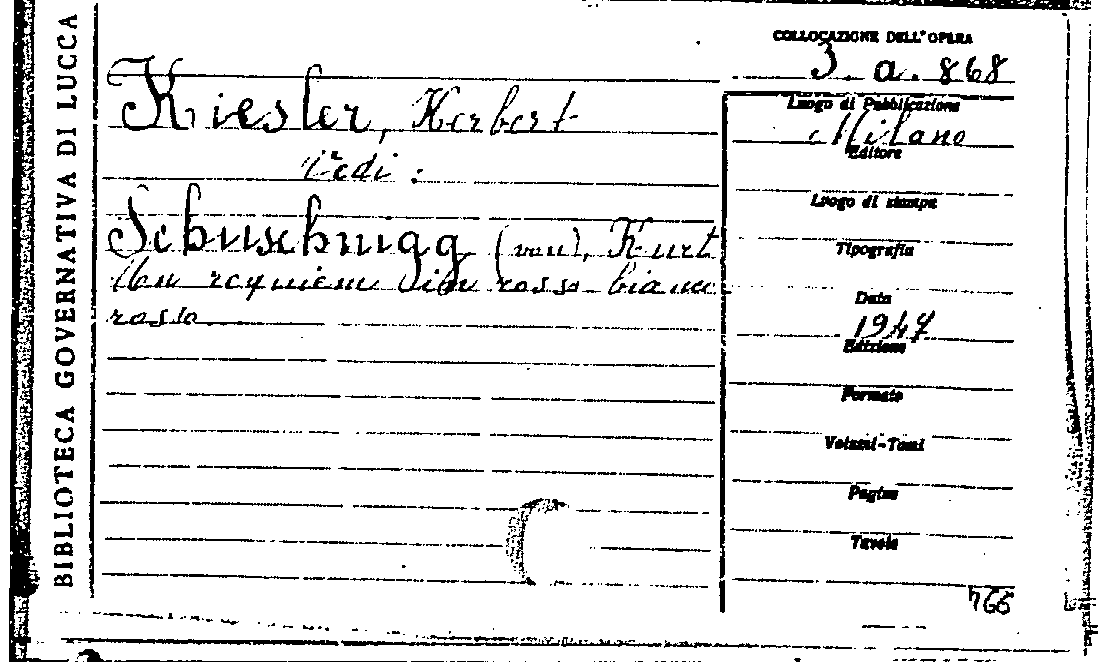 BIBLIOTECA GOVERNATIVA DI LUCCA
Kiesler, Herbert
Vedi:
Schuschnigg (von), Kurt
Un requiem in rosso-bianco-
rosso
COLLOCAZIONE DELL'OPERA
3. a. 868
Luogo di Pubblicazione
Milano
Editore
Luogo di stampa
Tipografia
Data
1947
Edizione
Formato
Volumi-Tomi
Pagine
Tavole